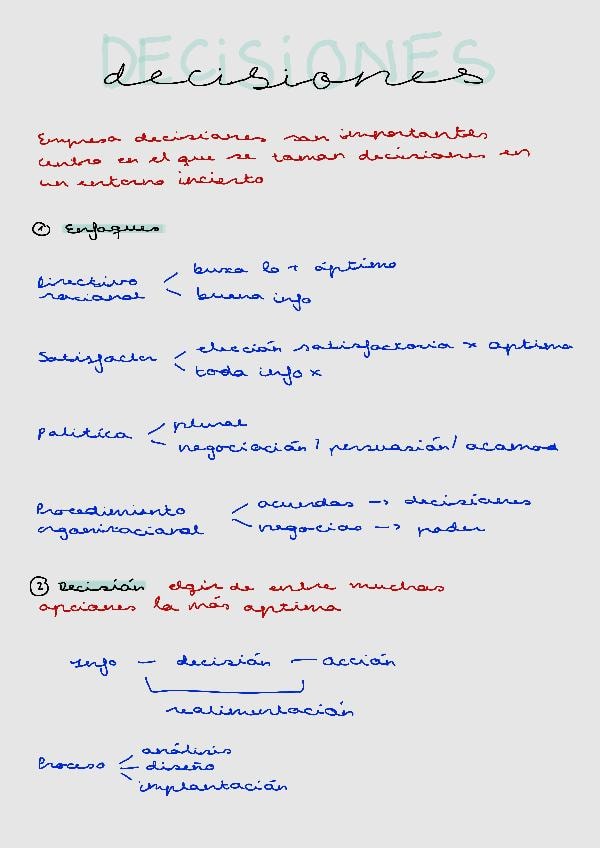 DECISIONES
decisiones
Empresa decisiones son importantes
centro en el que se toman decisiones en
un entorno incierto
① Enfoques
Directivo
racional
busca lo + óptimo
buena info
Satisfactor
elección satisfactoria x optima
toda info x
Politica
plural
negociación / persuasión / acomod
Procedimiento
organizacional
acuerdos -> decisiones
negocias -> poder
② Decisión elgir de entre muchas
opciones la más optima
Info — decisión — acción
realimentación
Proceso
análisis
diseño
implantación